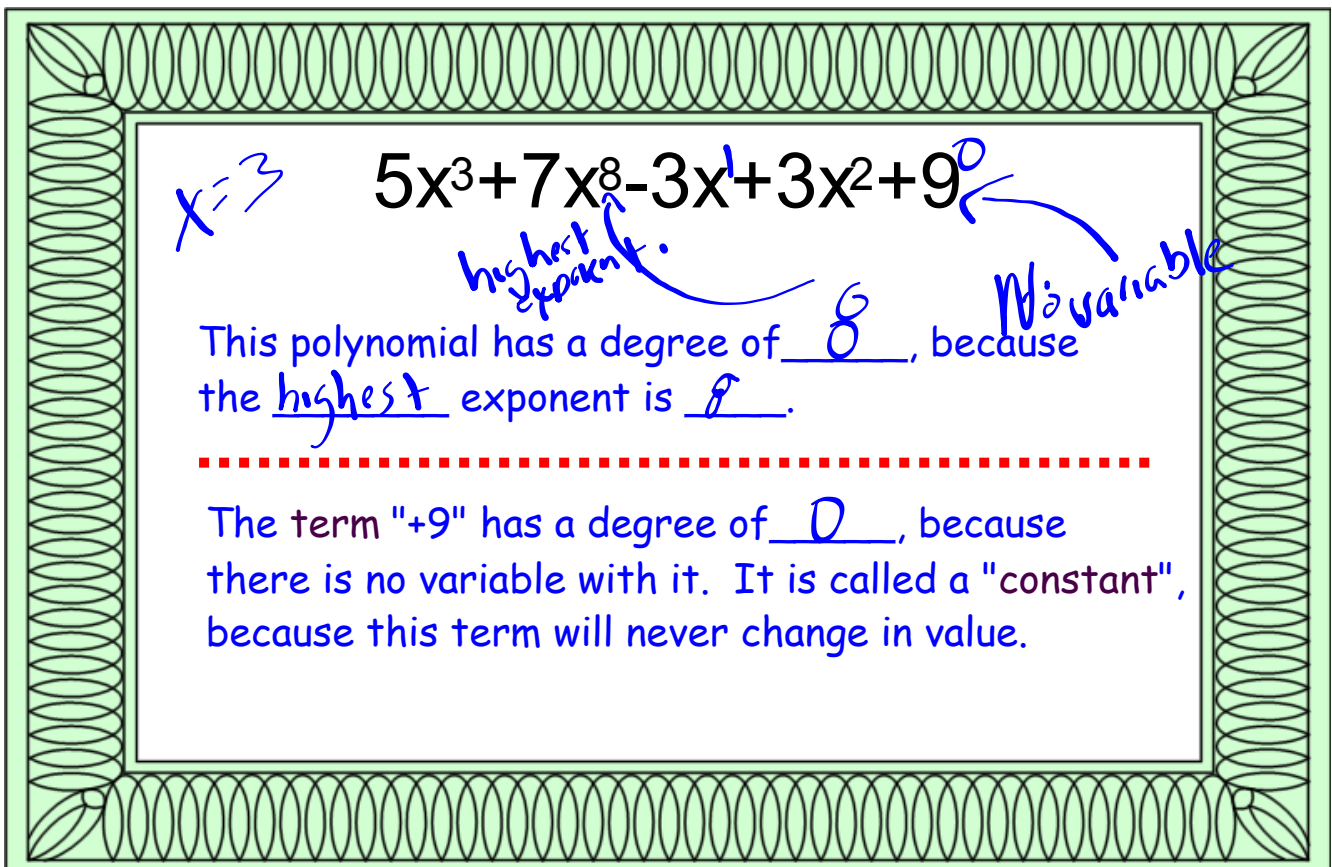 x=3
5x³+7x⁸-3x¹+3x²+9⁰
highest
exponent.
No variable
This polynomial has a degree of 8, because
the highest exponent is 8.
The term "+9" has a degree of 0, because
there is no variable with it. It is called a "constant",
because this term will never change in value.